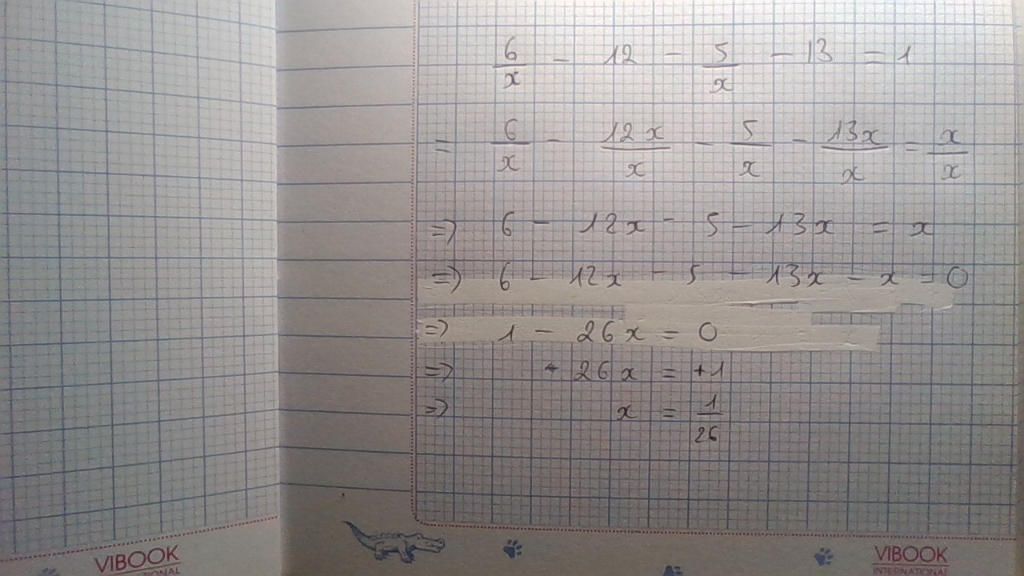 6/x - 12 - 5/x - 13 = 1
= 6/x - 12x/x - 5/x - 13x/x = x/x
=> 6 - 12x - 5 - 13x = x
=> 6 - 12x - 5 - 13x - x = 0
=> 1 - 26x = 0
=> + 26x = +1
=> x = 1/26
VIBOOK
VIBOOK
INTERNATIONAL